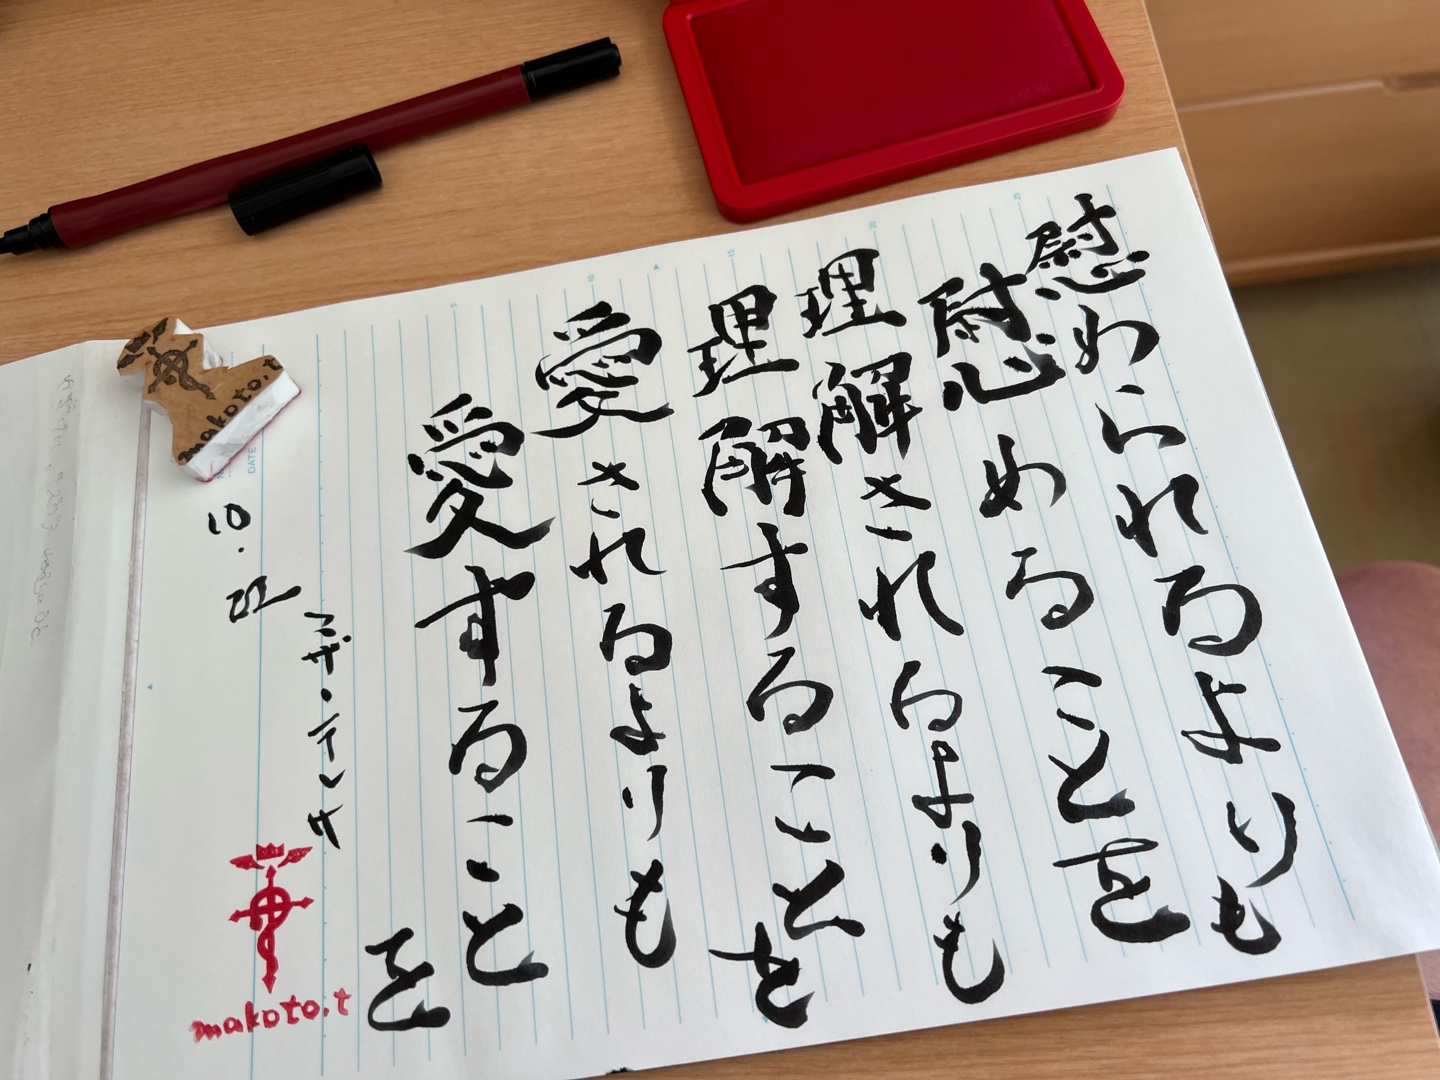 慰められるよりも
慰めることを
理解されるよりも
理解することを
愛されるよりも
愛することを
マザーテレサ
10.
makoto.t
makoto.t
DATE